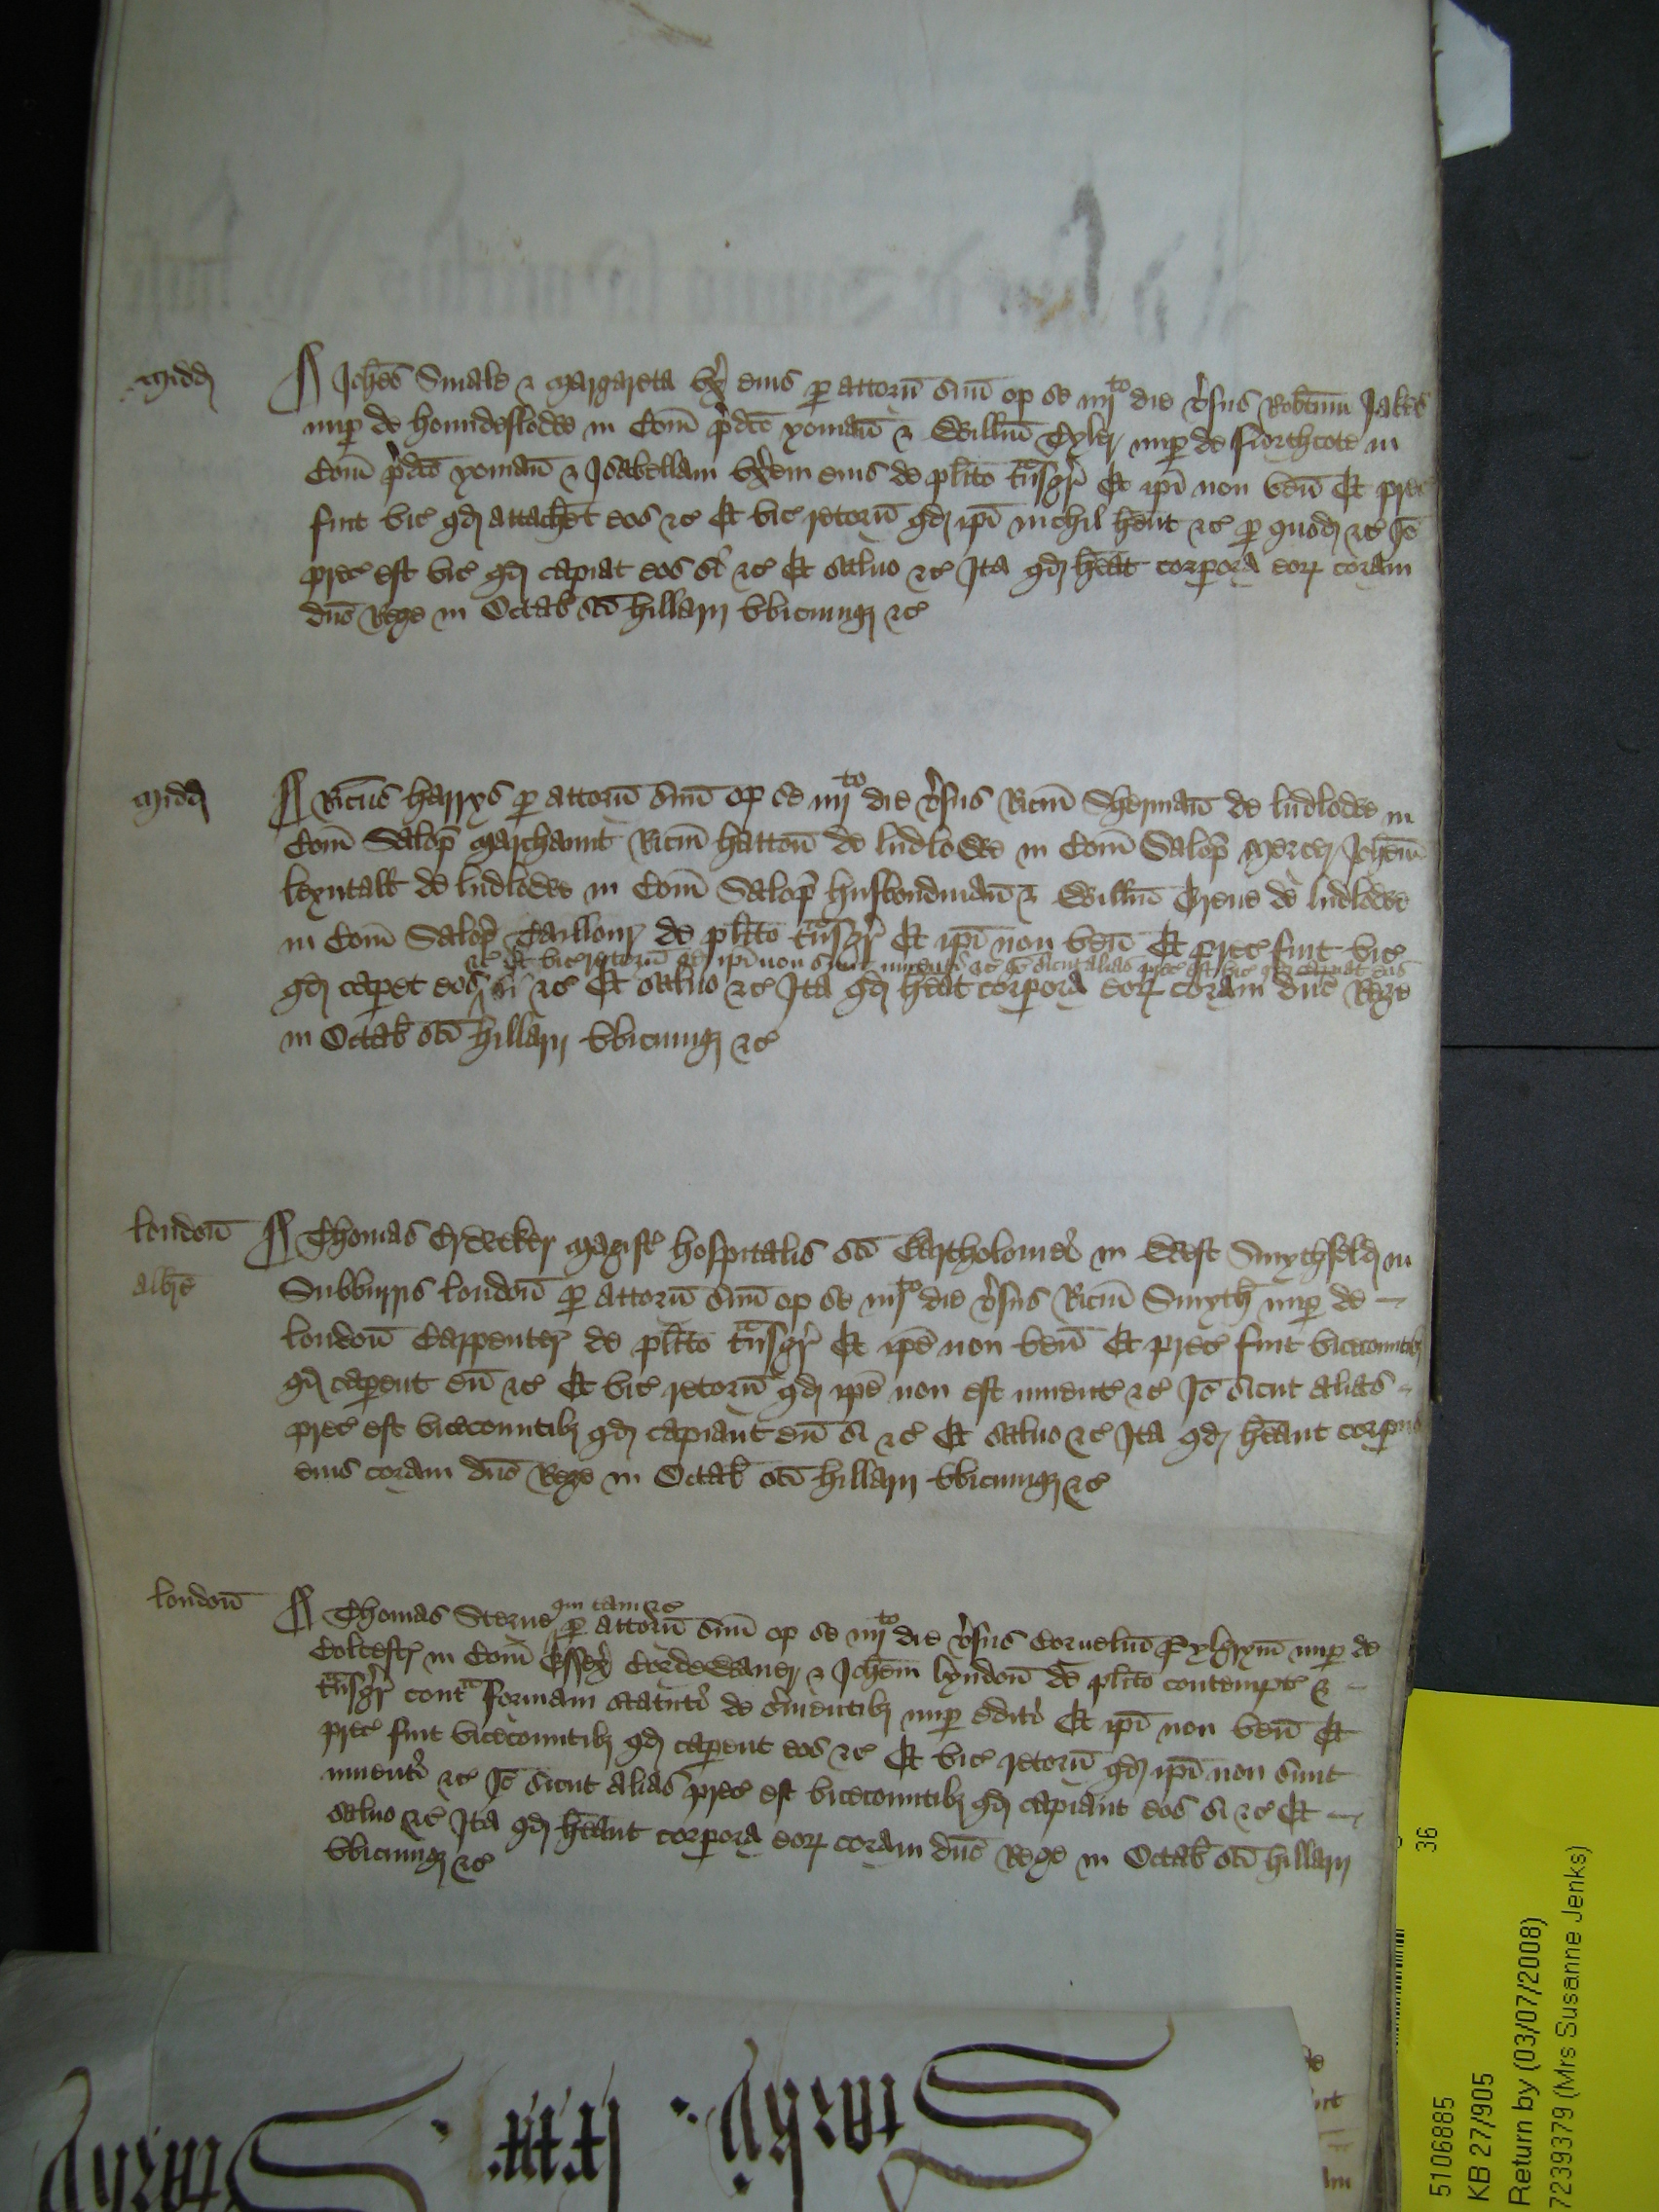 Midd Joħes Smale & Margareta uẋ eius ꝑ attorñ suũ op se iiij to die v̉sus Robtum Jakes
nuꝑ de Houndeslowe in Com̃ p̉dco yomañ & Willm̃ Tyler nuꝑ de Northcote in
Com̃ p̉dco yomañ & Isabellam ux̉em eius de pl̃ito tñsgr̉ Et ip̃i non veñ Et prec
fuit vic qd attacħet eos &c Et vic retorñ qd ip̃i nichil ħent &c ꝑ quod &c Iõ
prec est vic qd capiat eos si &c Et saluo &c Ita qd ħeat corpora eoꝝ coram
dño Rege in Octab̃ sc̃i Hillarij vbicumqꝫ &c
Midd Ric̃us Harrys ꝑ attorñ suũ op se iiij to die v̉sus Ric̃m Sherman̄ de Ludlowe in
Com̃ Salop̉ Marchaunt Ric̃m Hattoñ de Ludlowe in Com̃ Salop̉ Mercer Joħem
de Ludlowe in Com̃ Salop̉ husbondmañ & Willm̃ de Ludlowe
in Com̃ Salop̉ Taillour de pl̃ito tñsgr̉ Et ip̃i non veñ Et prec fuit vic
&c Et vic retorñ qd ip̃i non sunt inuenti &c Iõ sicut alias prec est vic qd capiat eos
qd capet eos si &c Et saluo &c Ita qd ħeat corpora eoꝝ coram dño Rege
in Octab̃ sc̃i Hillarij vbicumqꝫ &c
Londoñ Thomas Crewker Magist̃ hospitalis sc̃i Bartholomei in West Smythfeld in
Subburbis Londoñ ꝑ attorñ suũ op se iiij to die v̉sus Ric̃m Smyth nuꝑ de
Londoñ Carpenter de pl̃ito tñsgr̉ Et ip̃e non veñ Et prec fuit vicecomitibꝫ
qd caperent eũ &c Et vic retorñ qd ip̃e non est inuent &c Iõ sicut alias
prec est vicecomitibꝫ qd capiant eũ si &c Et saluo &c Ita qd ħeant corpus
eius coram dño Rege in Octab̃ sc̃i Hillarij vbicumqꝫ &c
Londoñ Thomas Sterne qui tam &c ꝑ attorñ suũ op se iiij to die v̉sus Corneliũ Pylgrym̃ nuꝑ de
Colcestr in Com̃ Essex̉ Cordewaner & Joħem Lyndoñ de pl̃ito contempt &
tñsgr̉ cont̃ formam statuti de s̉uientibꝫ nuꝑ editi Et ip̃i non veñ Et
prec fuit vicecomitibꝫ qd caperent eos &c Et vic retorñ qd ip̃i non sunt
inuenti &c Iõ sicut alias prec est vicecomitibꝫ qd capiant eos si &c Et
saluo &c Ita qd ħeant corpora eoꝝ coram dño Rege in Octab̃ sc̃i Hillarij
vbicumqꝫ &c
36
5106885
KB 27/905
Return by (03/07/2008)
7239379 (Mrs Susanne Jenks)